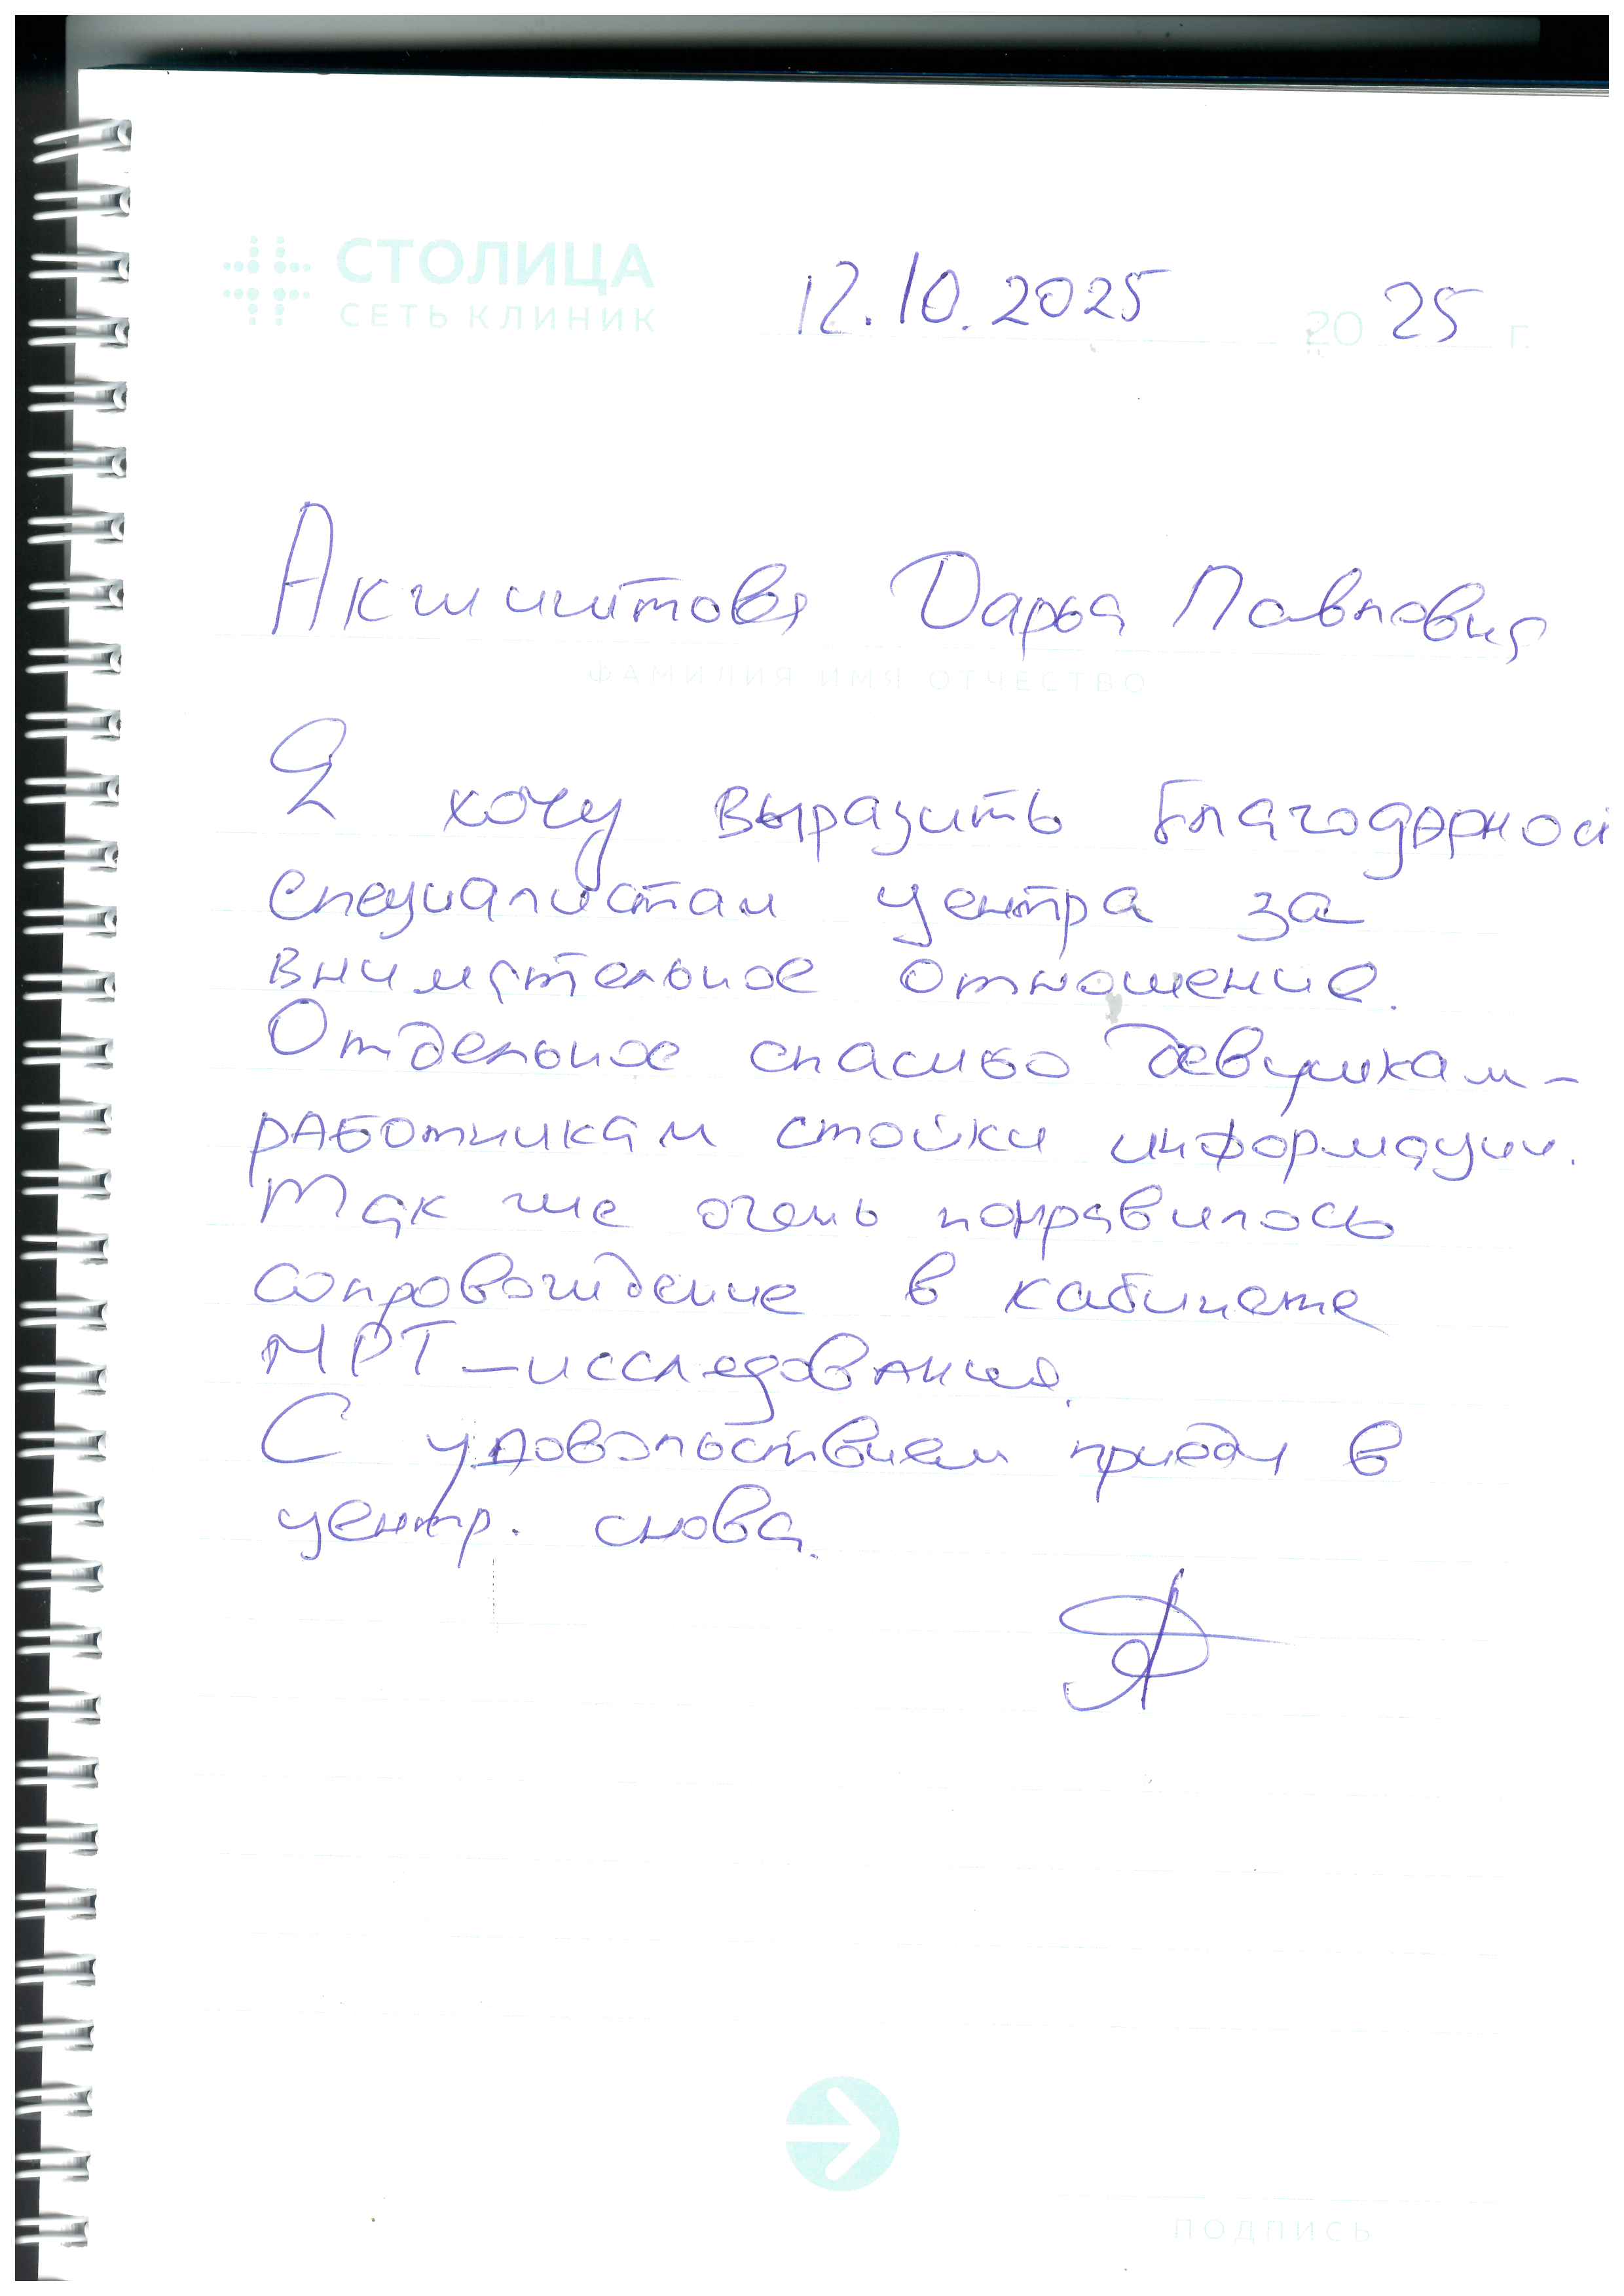 СТОЛИЦА
СЕТЬ КЛИНИК
12.10.2025 2025 г.
Дарья Павловна
ФАМИЛИЯ ИМЯ ОТЧЕСТВО
Я хочу выразить благодарнос
специалистам центра за
внимательное отношение.
Отдельное спасибо девушкам-
работникам стойки информации.
Так же очень понравилось
сопровождение в кабинете
МРТ-исследования.
С удовольствием приеду в
центр. снова.
ПОДПИСЬ